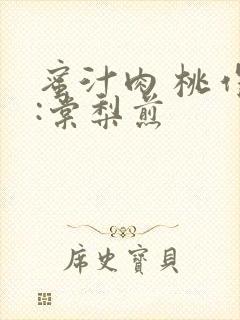 蜜汁肉桃作
:棠梨煎
席史寶貝